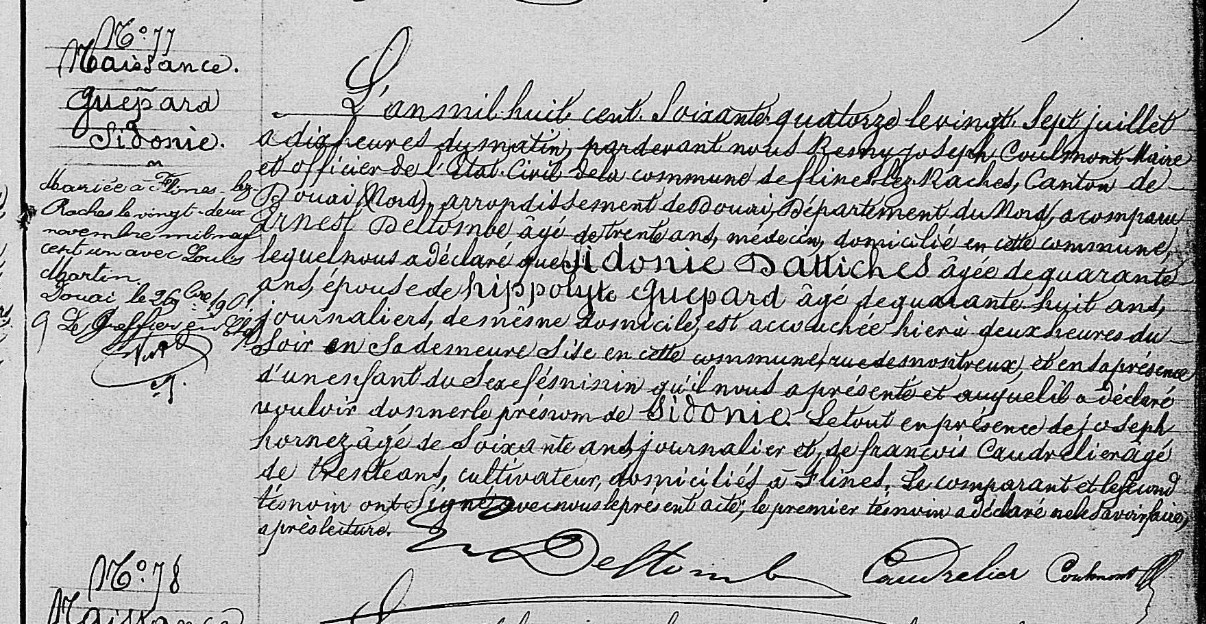 N° 77
Naissance.
Guépard
Sidonie.
Mariée à Flines-lez
Raches le vingt-deux
novembre mil neuf
cent un avec Louis
Martin.
Douai le 26 1901
Le Greffier en
L'an mil huit cent soixante quatorze le vingt sept juillet
a dix heures du matin, pardevant nous Remy Joseph Coulmont Maire
et officier de l'Etat Civil de la commune de Flines lez Raches, Canton de
Douai (Nord), arrondissement de Douai, Département du Nord, a comparu
Ernest Deltombe âgé de trente ans, médecin, domicilié en cette commune,
lequel nous a déclaré que Sidonie Dattiches âgée de quarante
ans, épouse de hippolyte Guépard âgé de quarante huit ans,
journaliers, de même domicile, est accouchée hier à deux heures du
Soir en Sa demeure Sise en cette commune, rue des et en sa présence
d'un enfant du Sexe féminin qu'il nous a présenté et auquel il a déclaré
vouloir donner le prénom de Sidonie. Le tout en présence de joseph
hornez âgé de Soixante ans, journalier et, de françois Caudrelier âgé
de trente ans, cultivateur, domiciliés à Flines. Le comparant et le second
témoin ont Signé avec nous le présent acte; le premier témoin a déclaré ne le Savoir faire,
après lecture.
Deltombe Caudrelier Coulmont
N° 78
Naissance